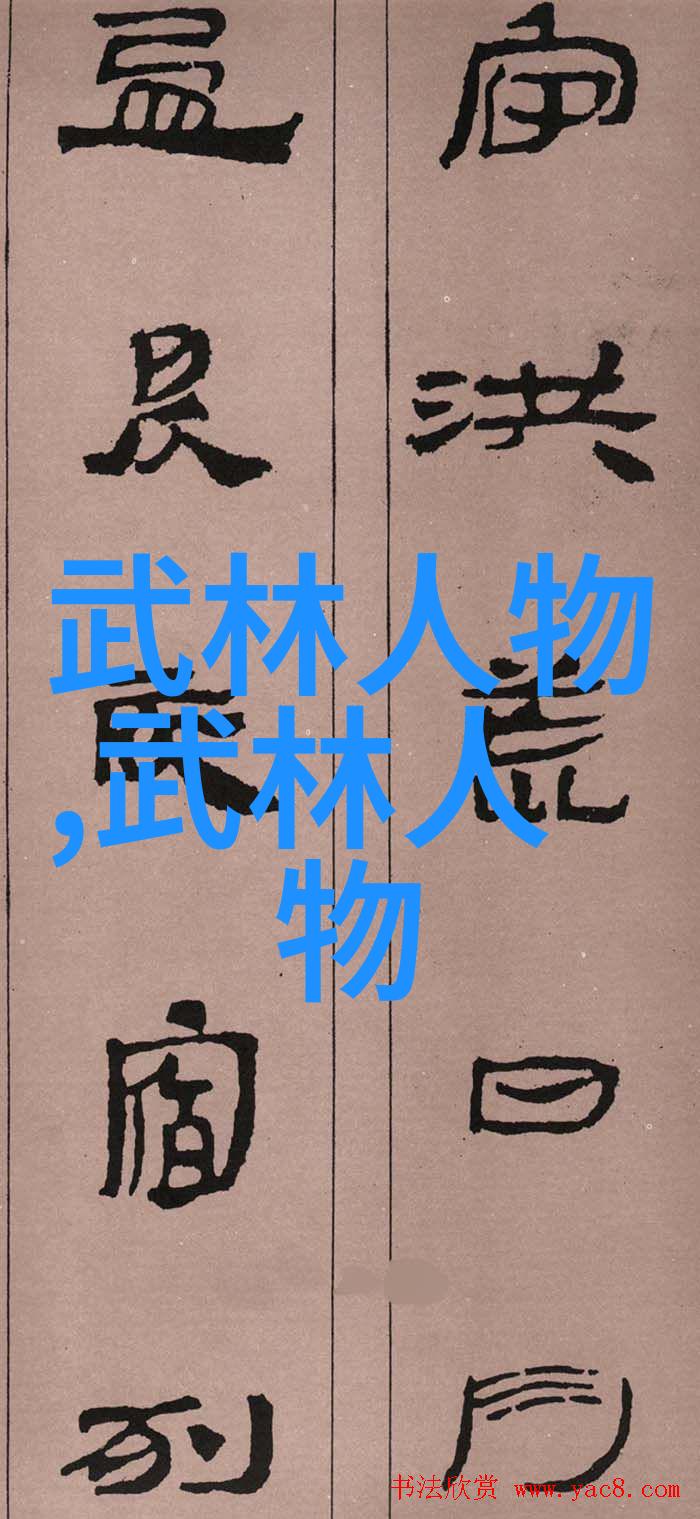 宇洪荒日月
盈昃辰宿列
武林人物
,武林人
物
书法欣赏 www.yac8.com